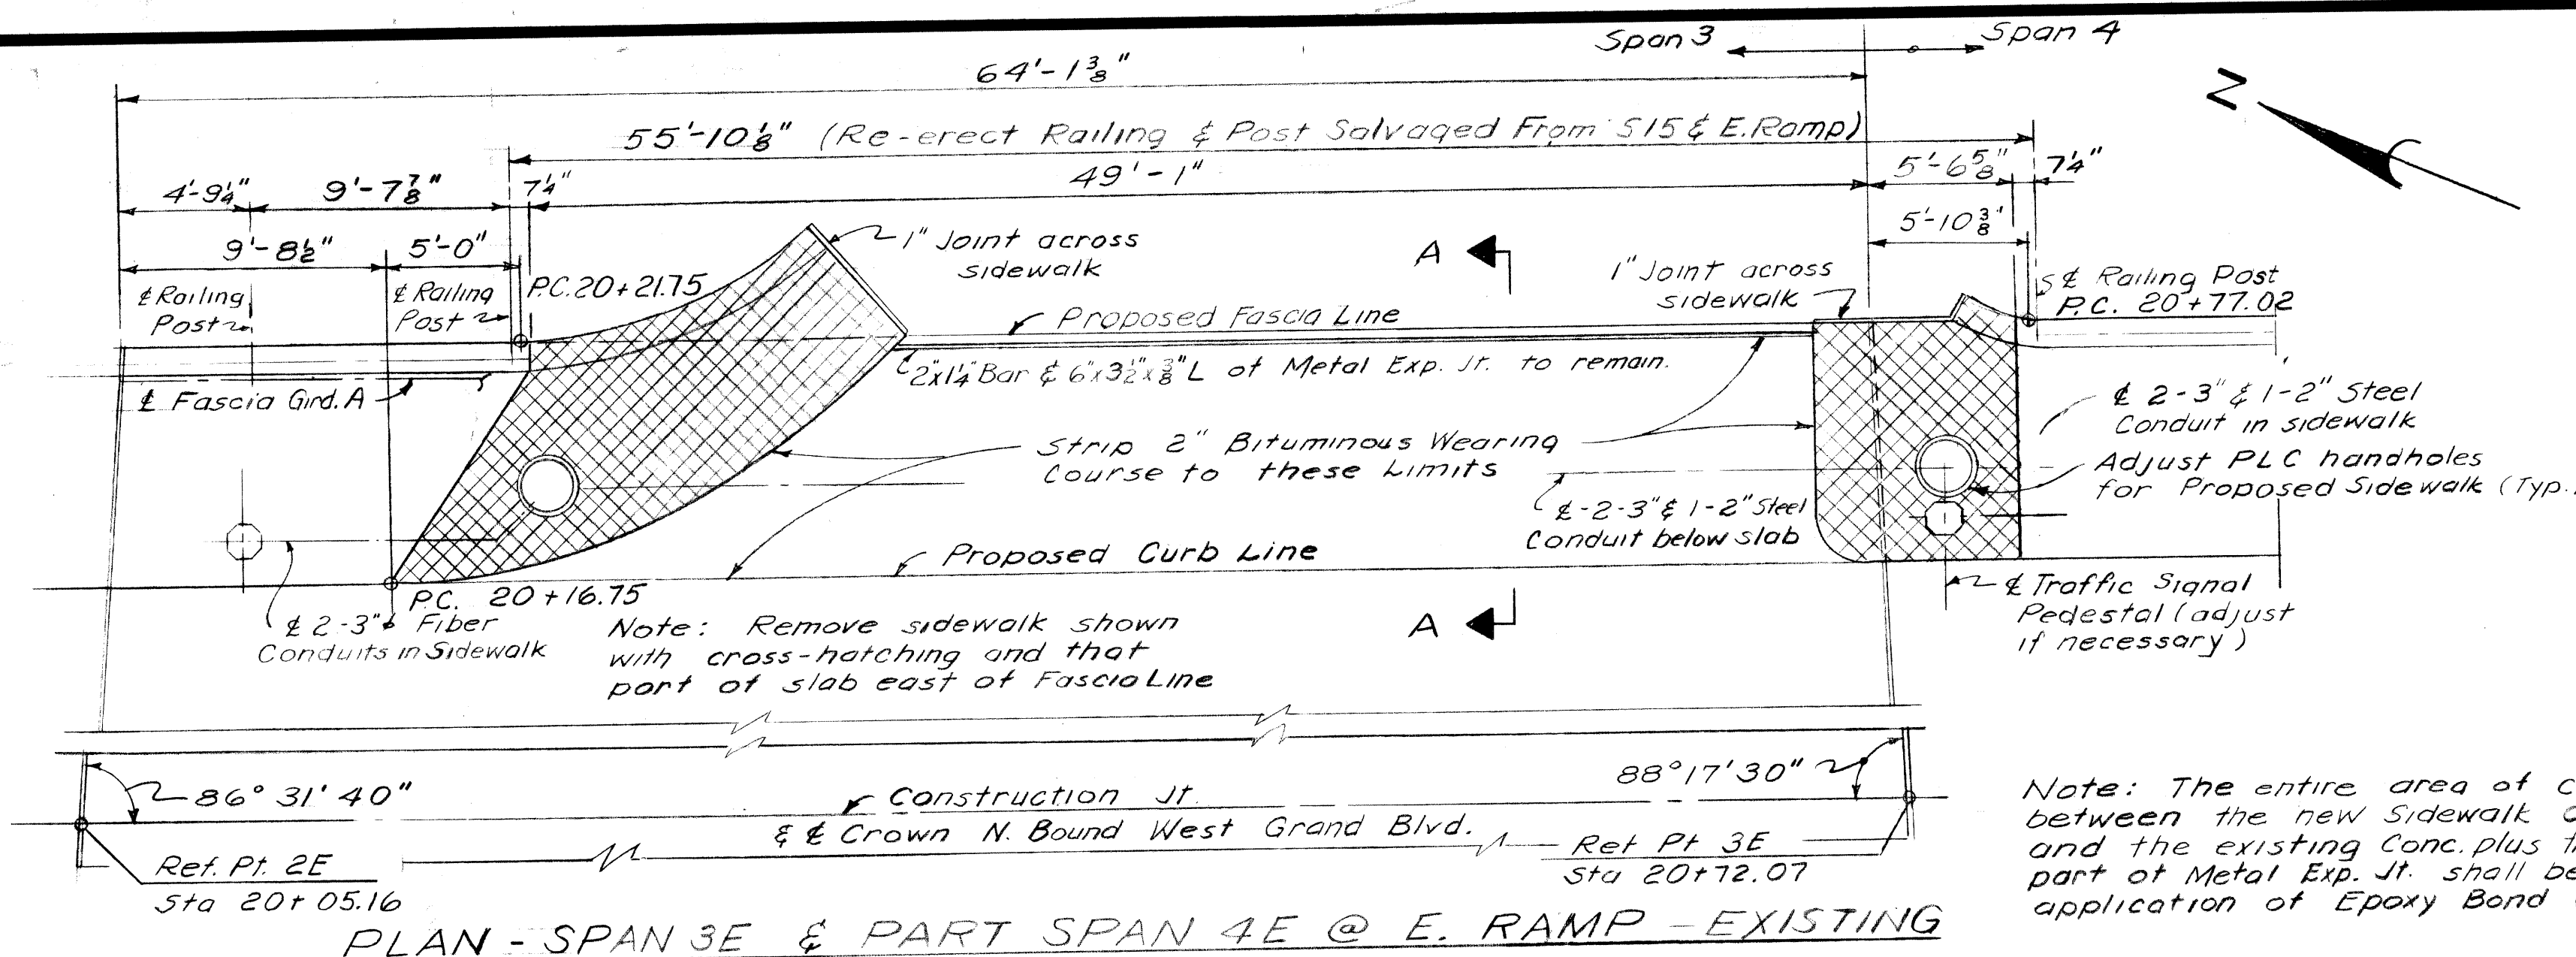 Span 3
Span 4
64'-1 3/8"
N
55'-10 1/8" (Re-erect Railing & Post Salvaged From S15 & E. Ramp)
4'-9 1/4"
9'-7 7/8"
7 1/4"
49'-1"
5'-6 5/8"
7 1/4"
9'-8 1/2"
5'-0"
5'-10 3/8"
1" Joint across
sidewalk
A
1" Joint across
sidewalk
℄ Railing
Post
℄ Railing
Post
P.C. 20+21.75
℄ Railing Post
P.C. 20+77.02
Proposed Fascia Line
2"x1 1/4" Bar & 6"x3 1/2"x3/8" L of Metal Exp. Jt. to remain.
℄ Fascia Gird. A
℄ 2-3" & 1-2" Steel
Conduit in sidewalk
Strip 2" Bituminous Wearing
Course to these Limits
Adjust PLC handholes
for Proposed Sidewalk (Typ.
℄-2-3" & 1-2" Steel
Conduit below slab
Proposed Curb Line
P.C. 20+16.75
℄ 2-3"ϕ Fiber
Conduits in Sidewalk
Note: Remove sidewalk shown
with cross-hatching and that
part of slab east of Fascia Line
A
℄ Traffic Signal
Pedestal (adjust
if necessary)
86° 31' 40"
88° 17' 30"
Construction Jt.
& ℄ Crown N. Bound West Grand Blvd.
Ref. Pt. 2E
Sta 20+05.16
Ref Pt 3E
Sta 20+72.07
Note: The entire area of
between the new Sidewalk
and the existing Conc. plus
part of Metal Exp. Jt. shall be
application of Epoxy Bond
PLAN - SPAN 3E & PART SPAN 4E @ E. RAMP - EXISTING